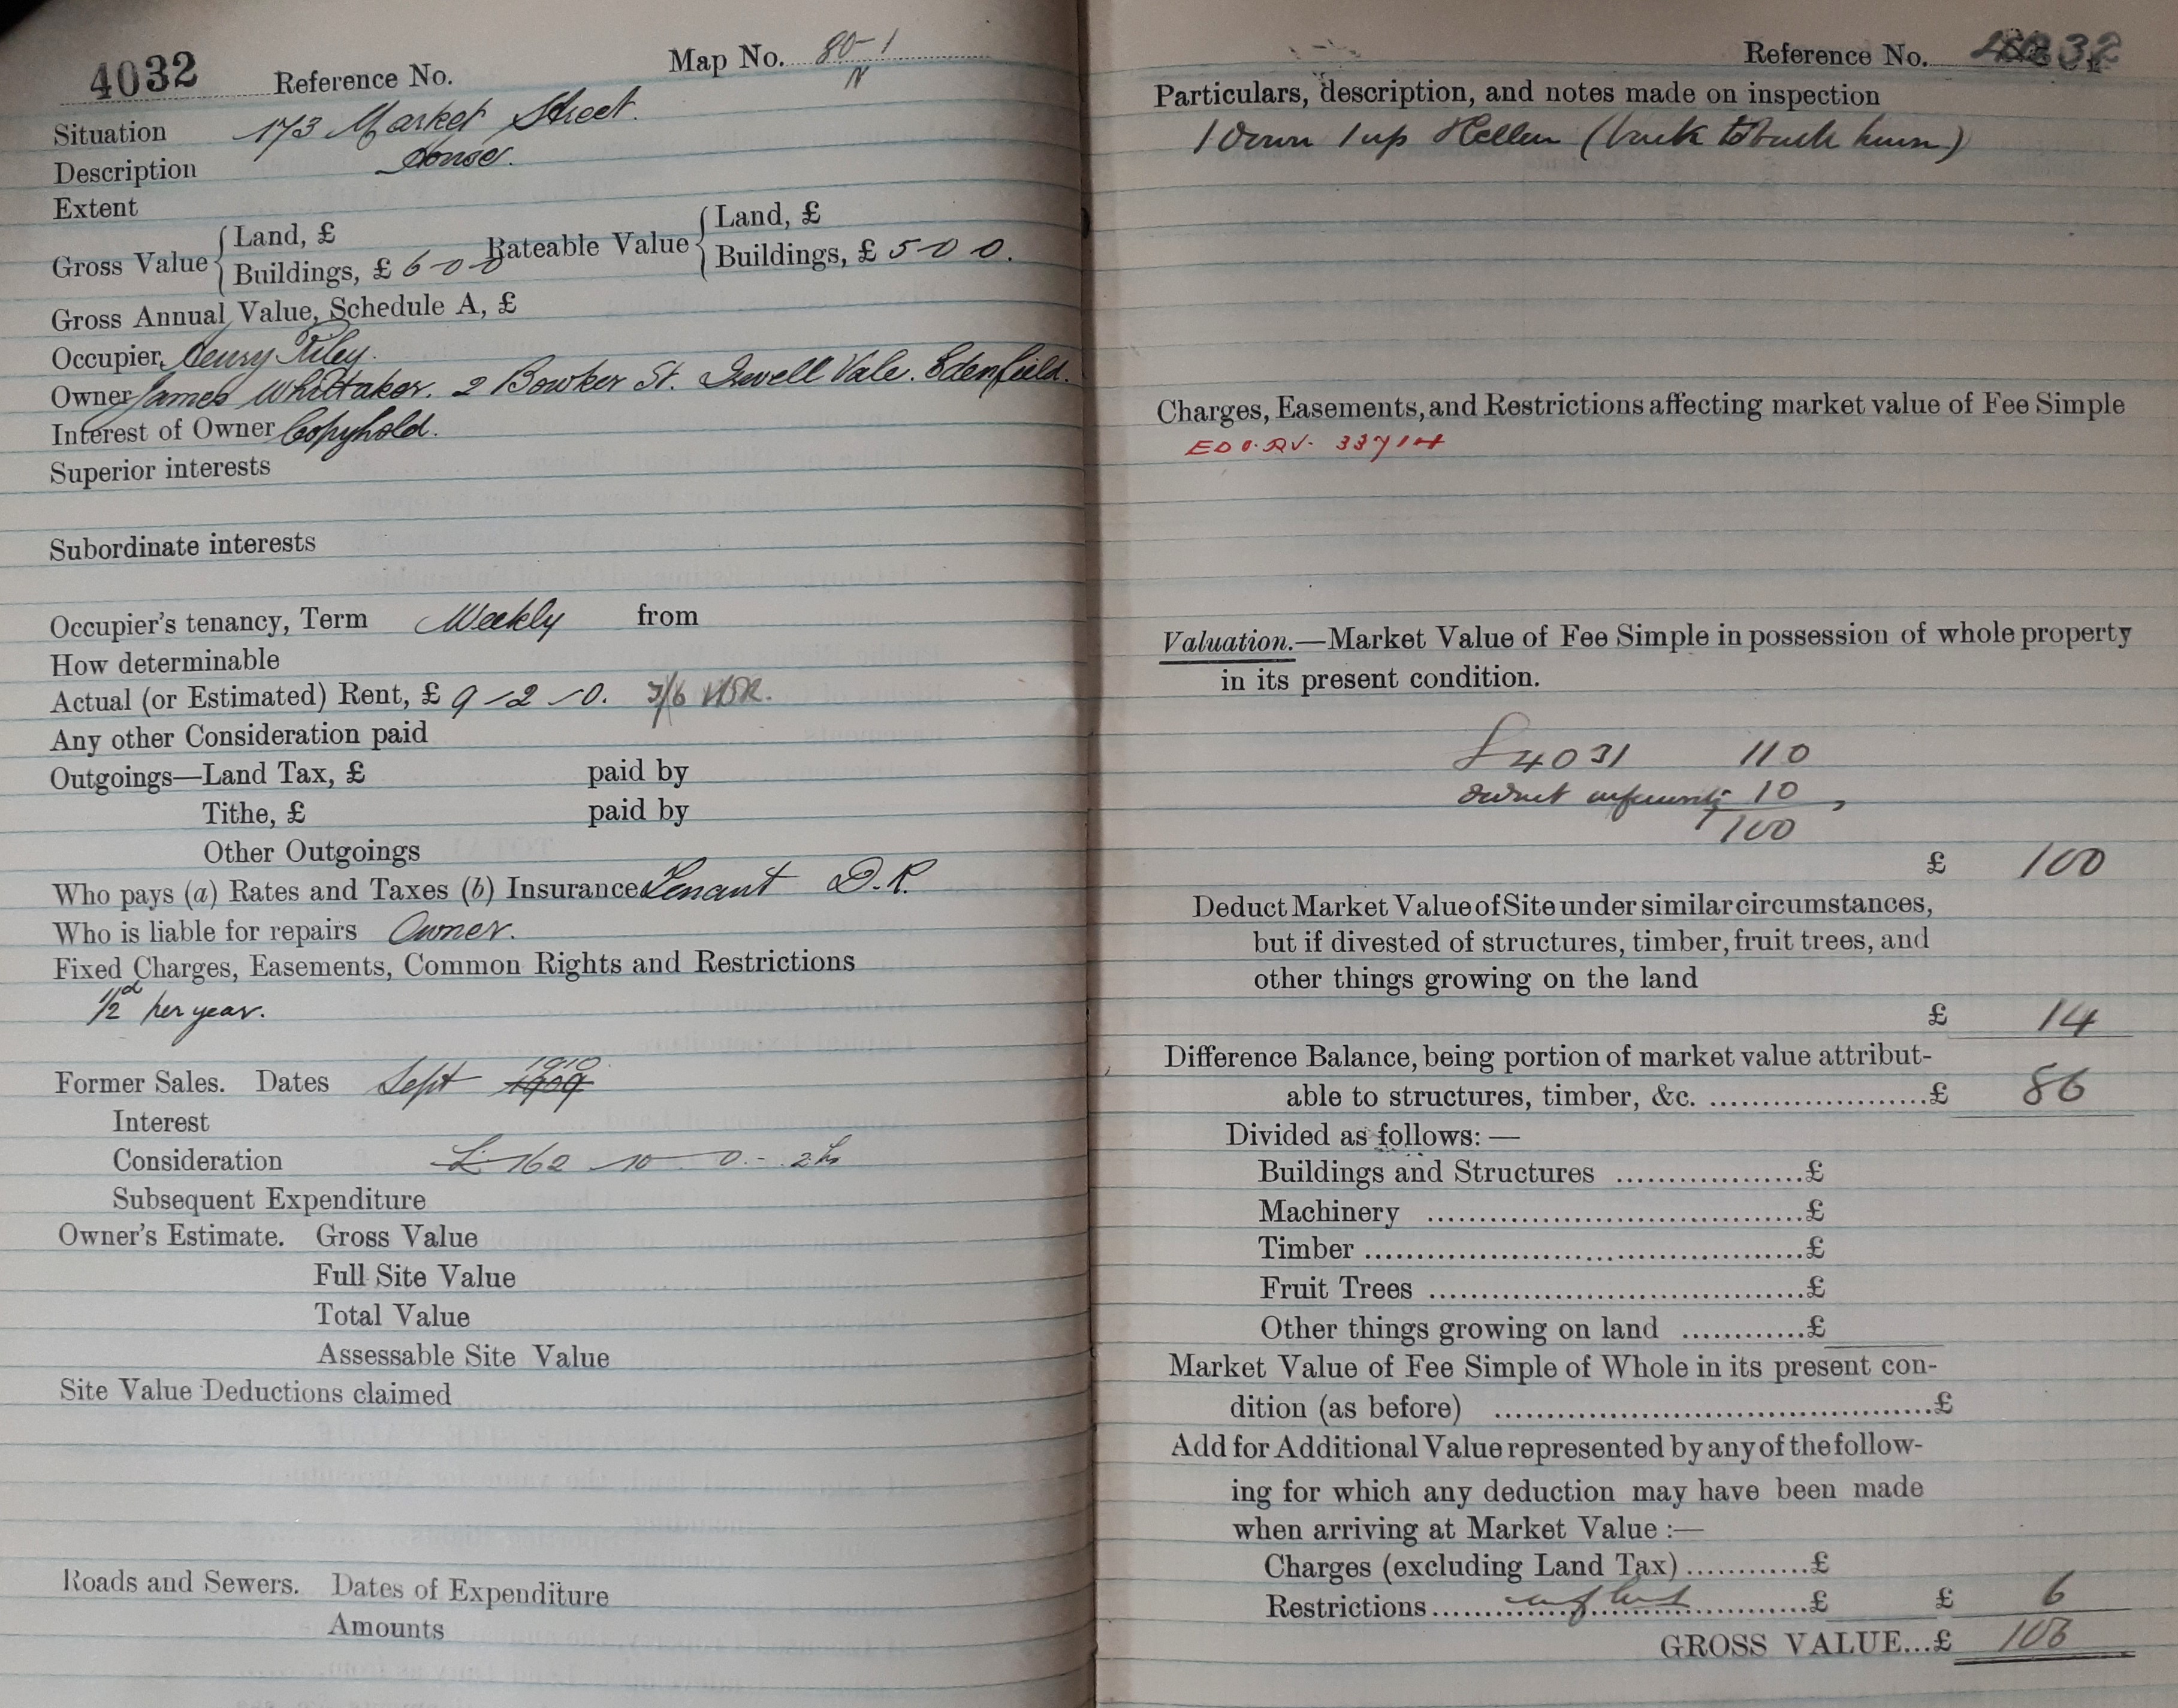 4032 Reference No. Map No. 80-1
N
Situation 173 Market Street.
Description House.
Extent
Gross Value { Land, £
Buildings, £ 6-0-0
Rateable Value { Land, £
Buildings, £ 5-0 0.
Gross Annual Value, Schedule A, £
Occupier, Henry Riley.
Owner James Whittaker. 2 Bowker St. Irwell Vale. Edenfield.
Interest of Owner Copyhold.
Superior interests
Subordinate interests
Occupier's tenancy, Term Weekly from
How determinable
Actual (or Estimated) Rent, £ 9-2-0. 3/6
Any other Consideration paid
Outgoings—Land Tax, £ paid by
Tithe, £ paid by
Other Outgoings
Who pays (a) Rates and Taxes (b) Insurance Tenant D.R.
Who is liable for repairs Owner.
Fixed Charges, Easements, Common Rights and Restrictions
1/2d per year.
Former Sales. Dates Sept 1910 1909
Interest
Consideration £162-10-0.- 2hs
Subsequent Expenditure
Owner's Estimate. Gross Value
Full Site Value
Total Value
Assessable Site Value
Site Value Deductions claimed
Roads and Sewers. Dates of Expenditure
Amounts
Reference No. 4032
Particulars, description, and notes made on inspection
1 down 1 up (back to back)
Charges, Easements, and Restrictions affecting market value of Fee Simple
33714
Valuation.—Market Value of Fee Simple in possession of whole property
in its present condition.
4031 110
10
100
£ 100
Deduct Market Value of Site under similar circumstances,
but if divested of structures, timber, fruit trees, and
other things growing on the land
£ 14
Difference Balance, being portion of market value attribut-
able to structures, timber, &c. ....................£ 86
Divided as follows:—
Buildings and Structures ..................£
Machinery ....................................£
Timber ..........................................£
Fruit Trees ....................................£
Other things growing on land ............£
Market Value of Fee Simple of Whole in its present con-
dition (as before) ..........................................£
Add for Additional Value represented by any of the follow-
ing for which any deduction may have been made
when arriving at Market Value :—
Charges (excluding Land Tax) ............£
Restrictions ....................................£ £ 6
GROSS VALUE...£ 106